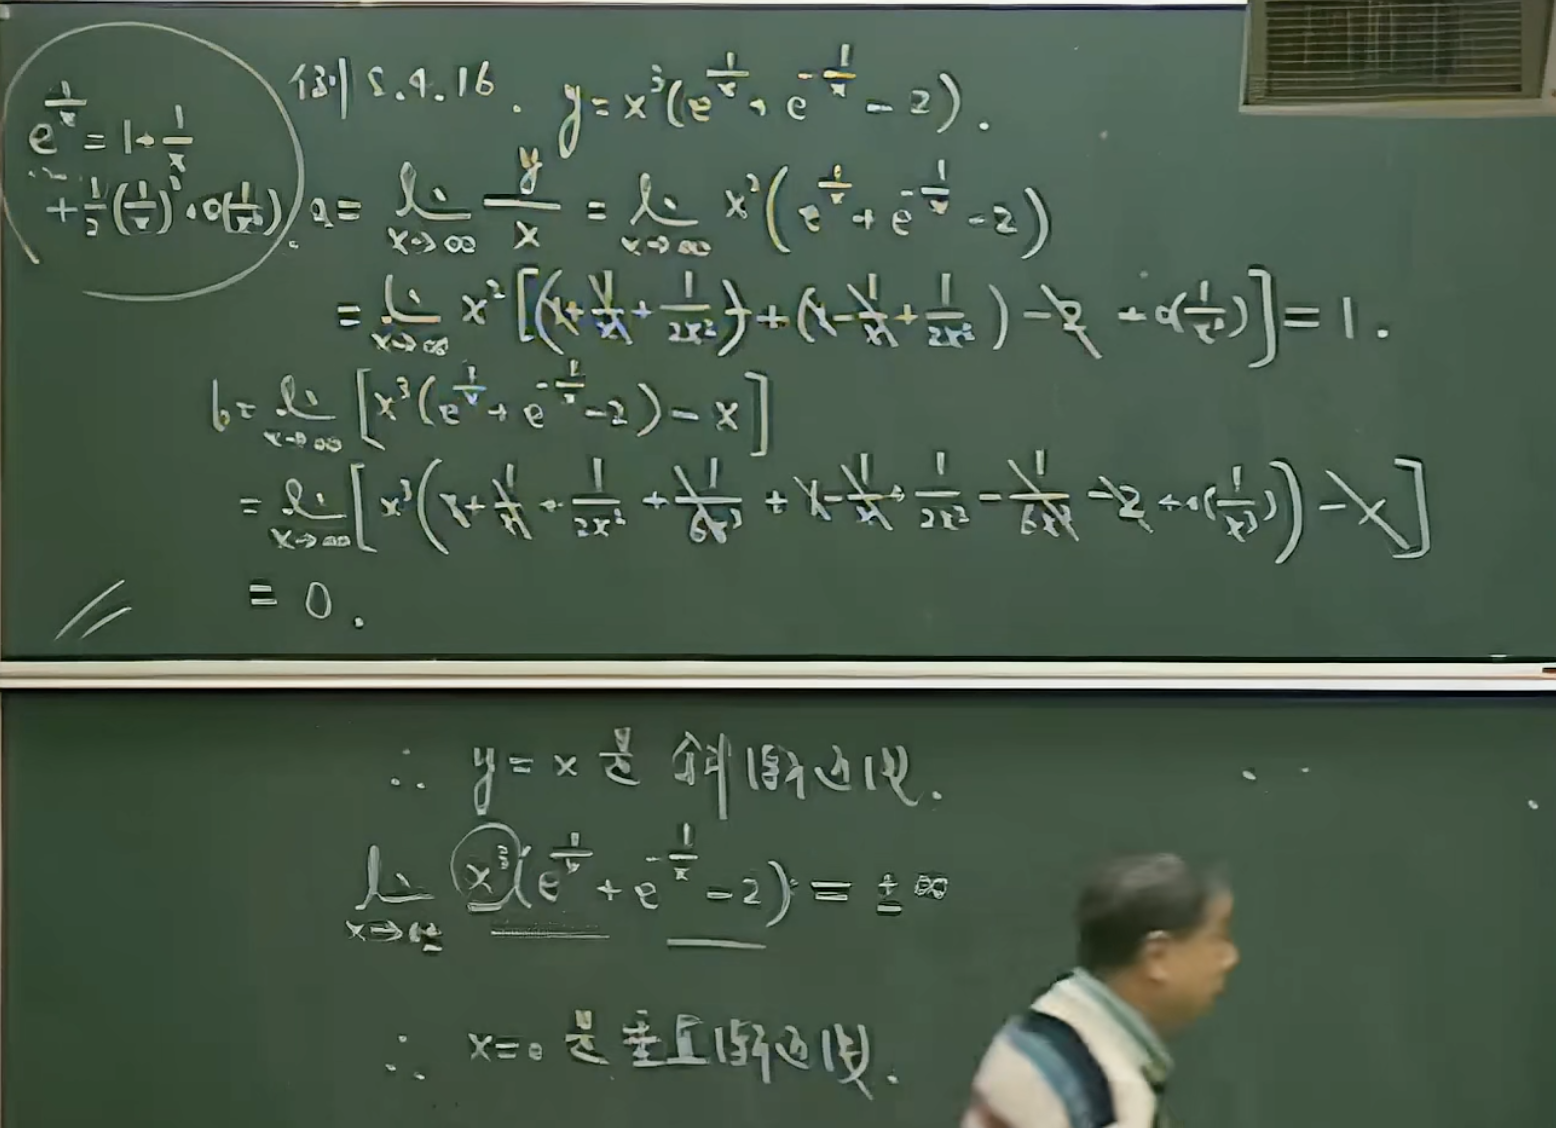 例 5.4.16. y = x³(e^{1/x} + e^{-1/x} - 2).
e^{1/x} = 1 + 1/x
+ 1/2 (1/x)² + o(1/x²).
a = lim_{x→∞} y/x = lim_{x→∞} x²(e^{1/x} + e^{-1/x} - 2)
= lim_{x→∞} x² [(1 + 1/x + 1/2x²) + (1 - 1/x + 1/2x²) - 2 + o(1/x²)] = 1.
b = lim_{x→∞} [x³(e^{1/x} + e^{-1/x} - 2) - x]
= lim_{x→∞} [x³(1 + 1/x + 1/2x² + 1/6x³ + 1 - 1/x + 1/2x² - 1/6x³ - 2 + o(1/x³)) - x]
= 0.
∴ y = x 是斜渐近线.
lim_{x→0±} x³(e^{1/x} + e^{-1/x} - 2) = ±∞
∴ x = 0 是垂直渐近线.